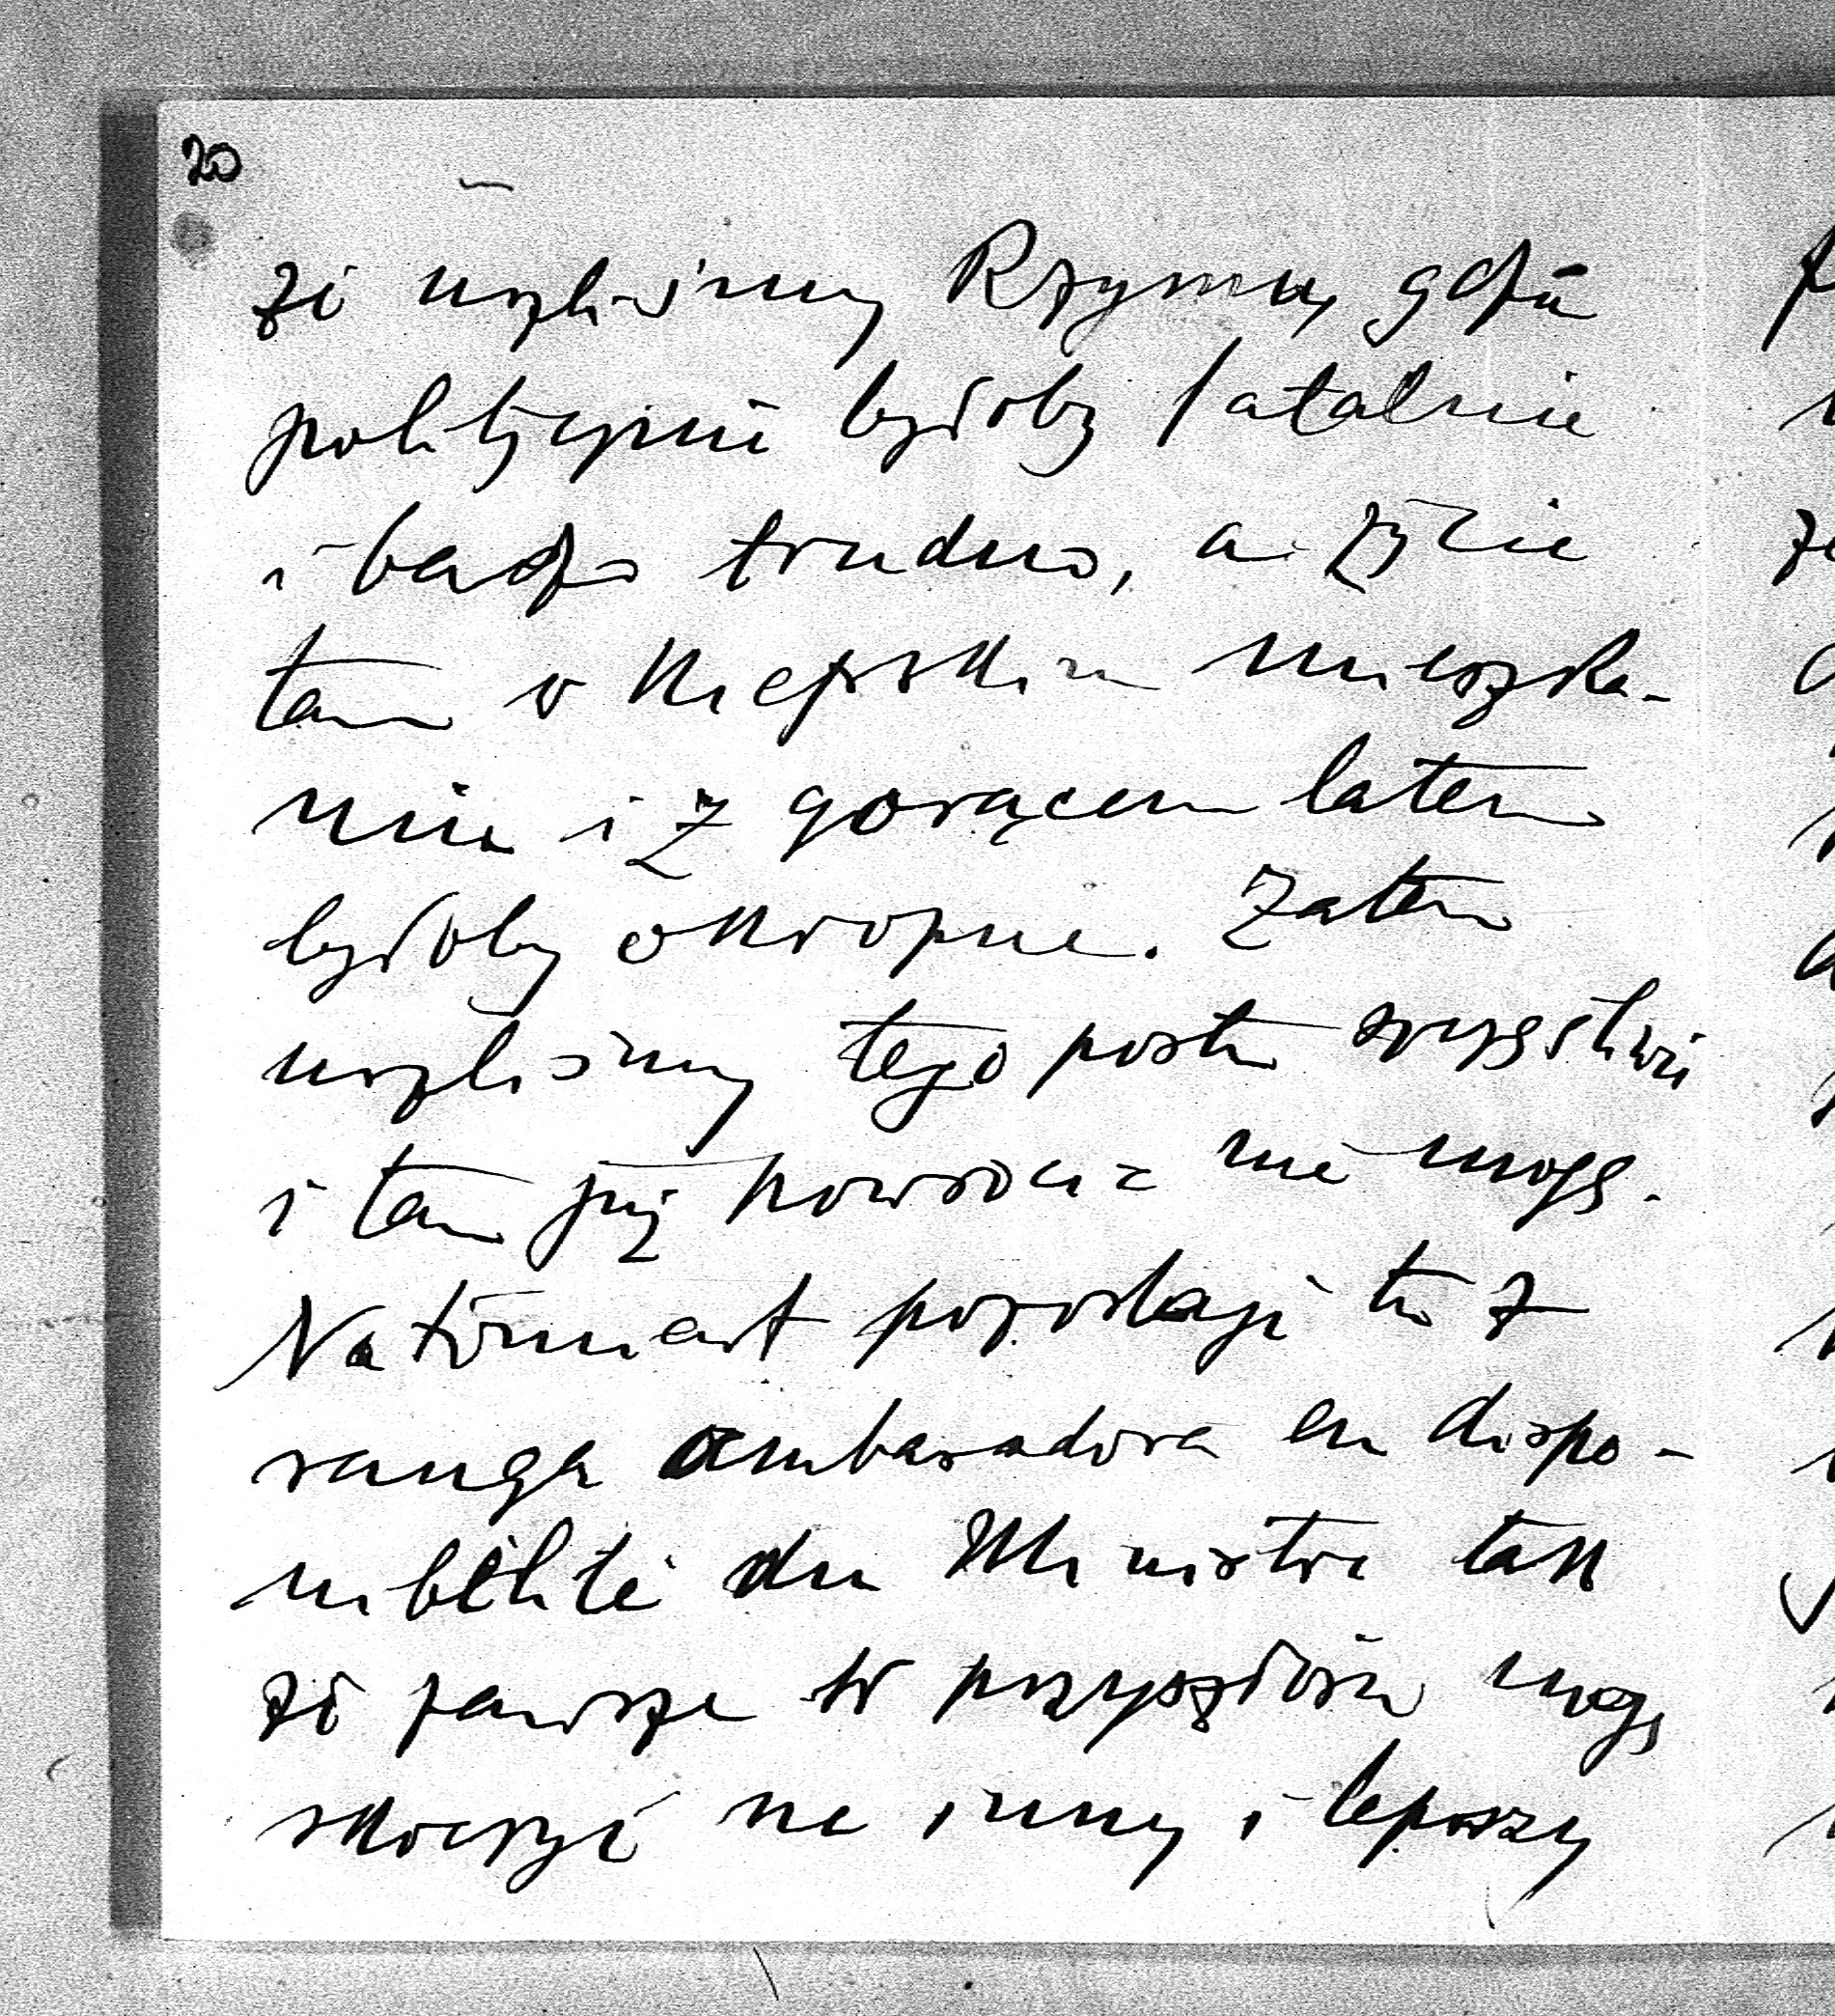 20
że uszliśmy Rzymu, gdzie
politycznie byłoby fatalnie
i bardzo trudno, a życie
tam w kiepskim mieszka-
niu i z gorącem latem
byłoby okropne. Zatem
uszliśmy tego postu szczęśliwie
i tam już powrócić nie mogę.
Natomiast pozostaję tu z
rangą ambasadora en dispo-
nibilité du Ministre tak
że zawsze w przyszłości mogę
skoczyć na inny i lepszy